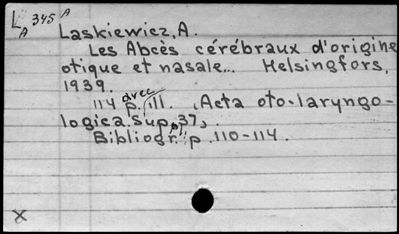 L 345 A
A
Laskiewicz, A.
Les Abcès cérébraux d'origine
otique et nasale... Helsingfors,
1939.
114 p. avec ill. (Acta oto-laryngo-
logica. Sup. 37),
Bibliogr. p. 110-114.
x